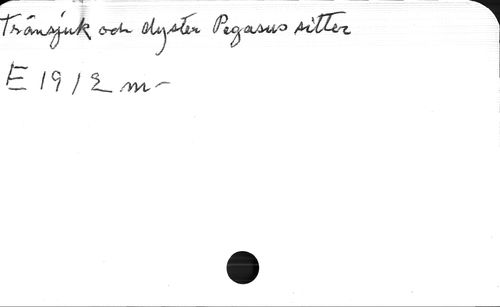 Trånsjuk och dyster Pegasus sitter
E 1912 m-